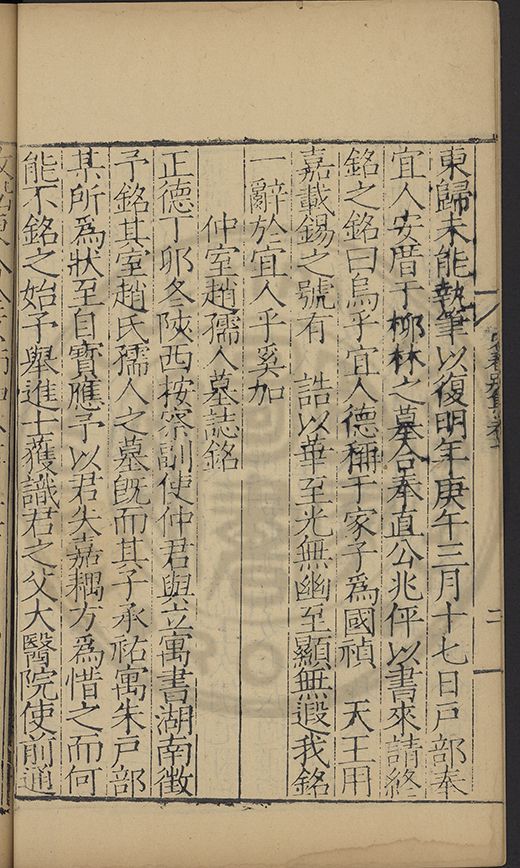 東歸未能執筆以復明年庚午三月十七日戸部奉
宜人安厝于栁林之墓合奉直公兆伻以書來請終
銘之銘曰烏乎宜人德稱于家子爲國禎 天王用
嘉載錫之號有 誥以華至光無幽至顯無遐我銘
一辭於宜人乎奚加
仲室趙孺人墓誌銘
正德丁卯冬陝西按察副使仲君與立寓書湖南徴
予銘其室趙氏孺人之墓旣而其子承祐寓朱戸部
某所爲狀至自寳應予以君失嘉耦方爲惜之而何
能不銘之始予舉進士獲識君之父大醫院使前通
二